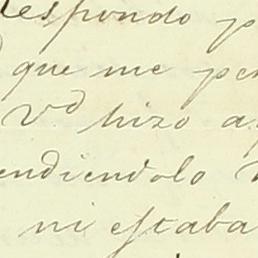 respondo p
que me pe
Vd hizo a
endiendolo
ni estaba